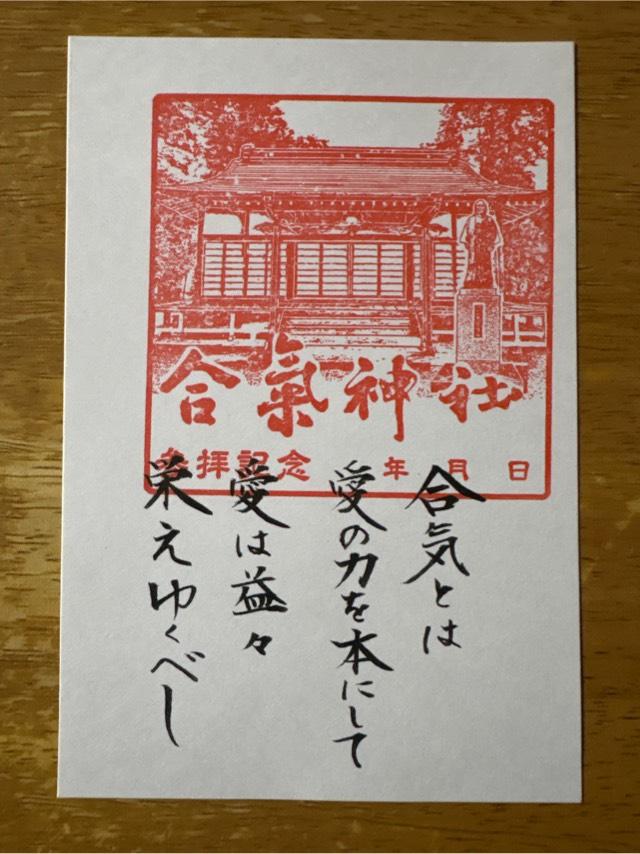 合氣神社
参拝記念 年 月 日
合気とは
愛の力を本にして
愛は益々
栄えゆくべし